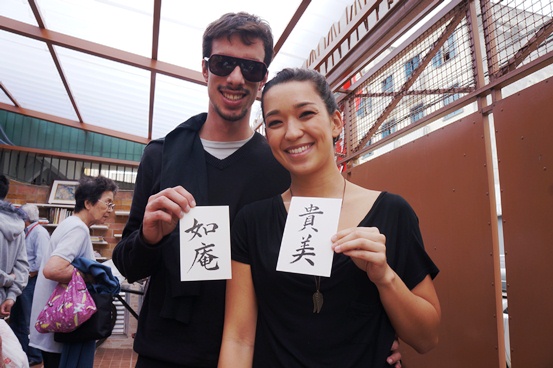 如
庵
貴
美